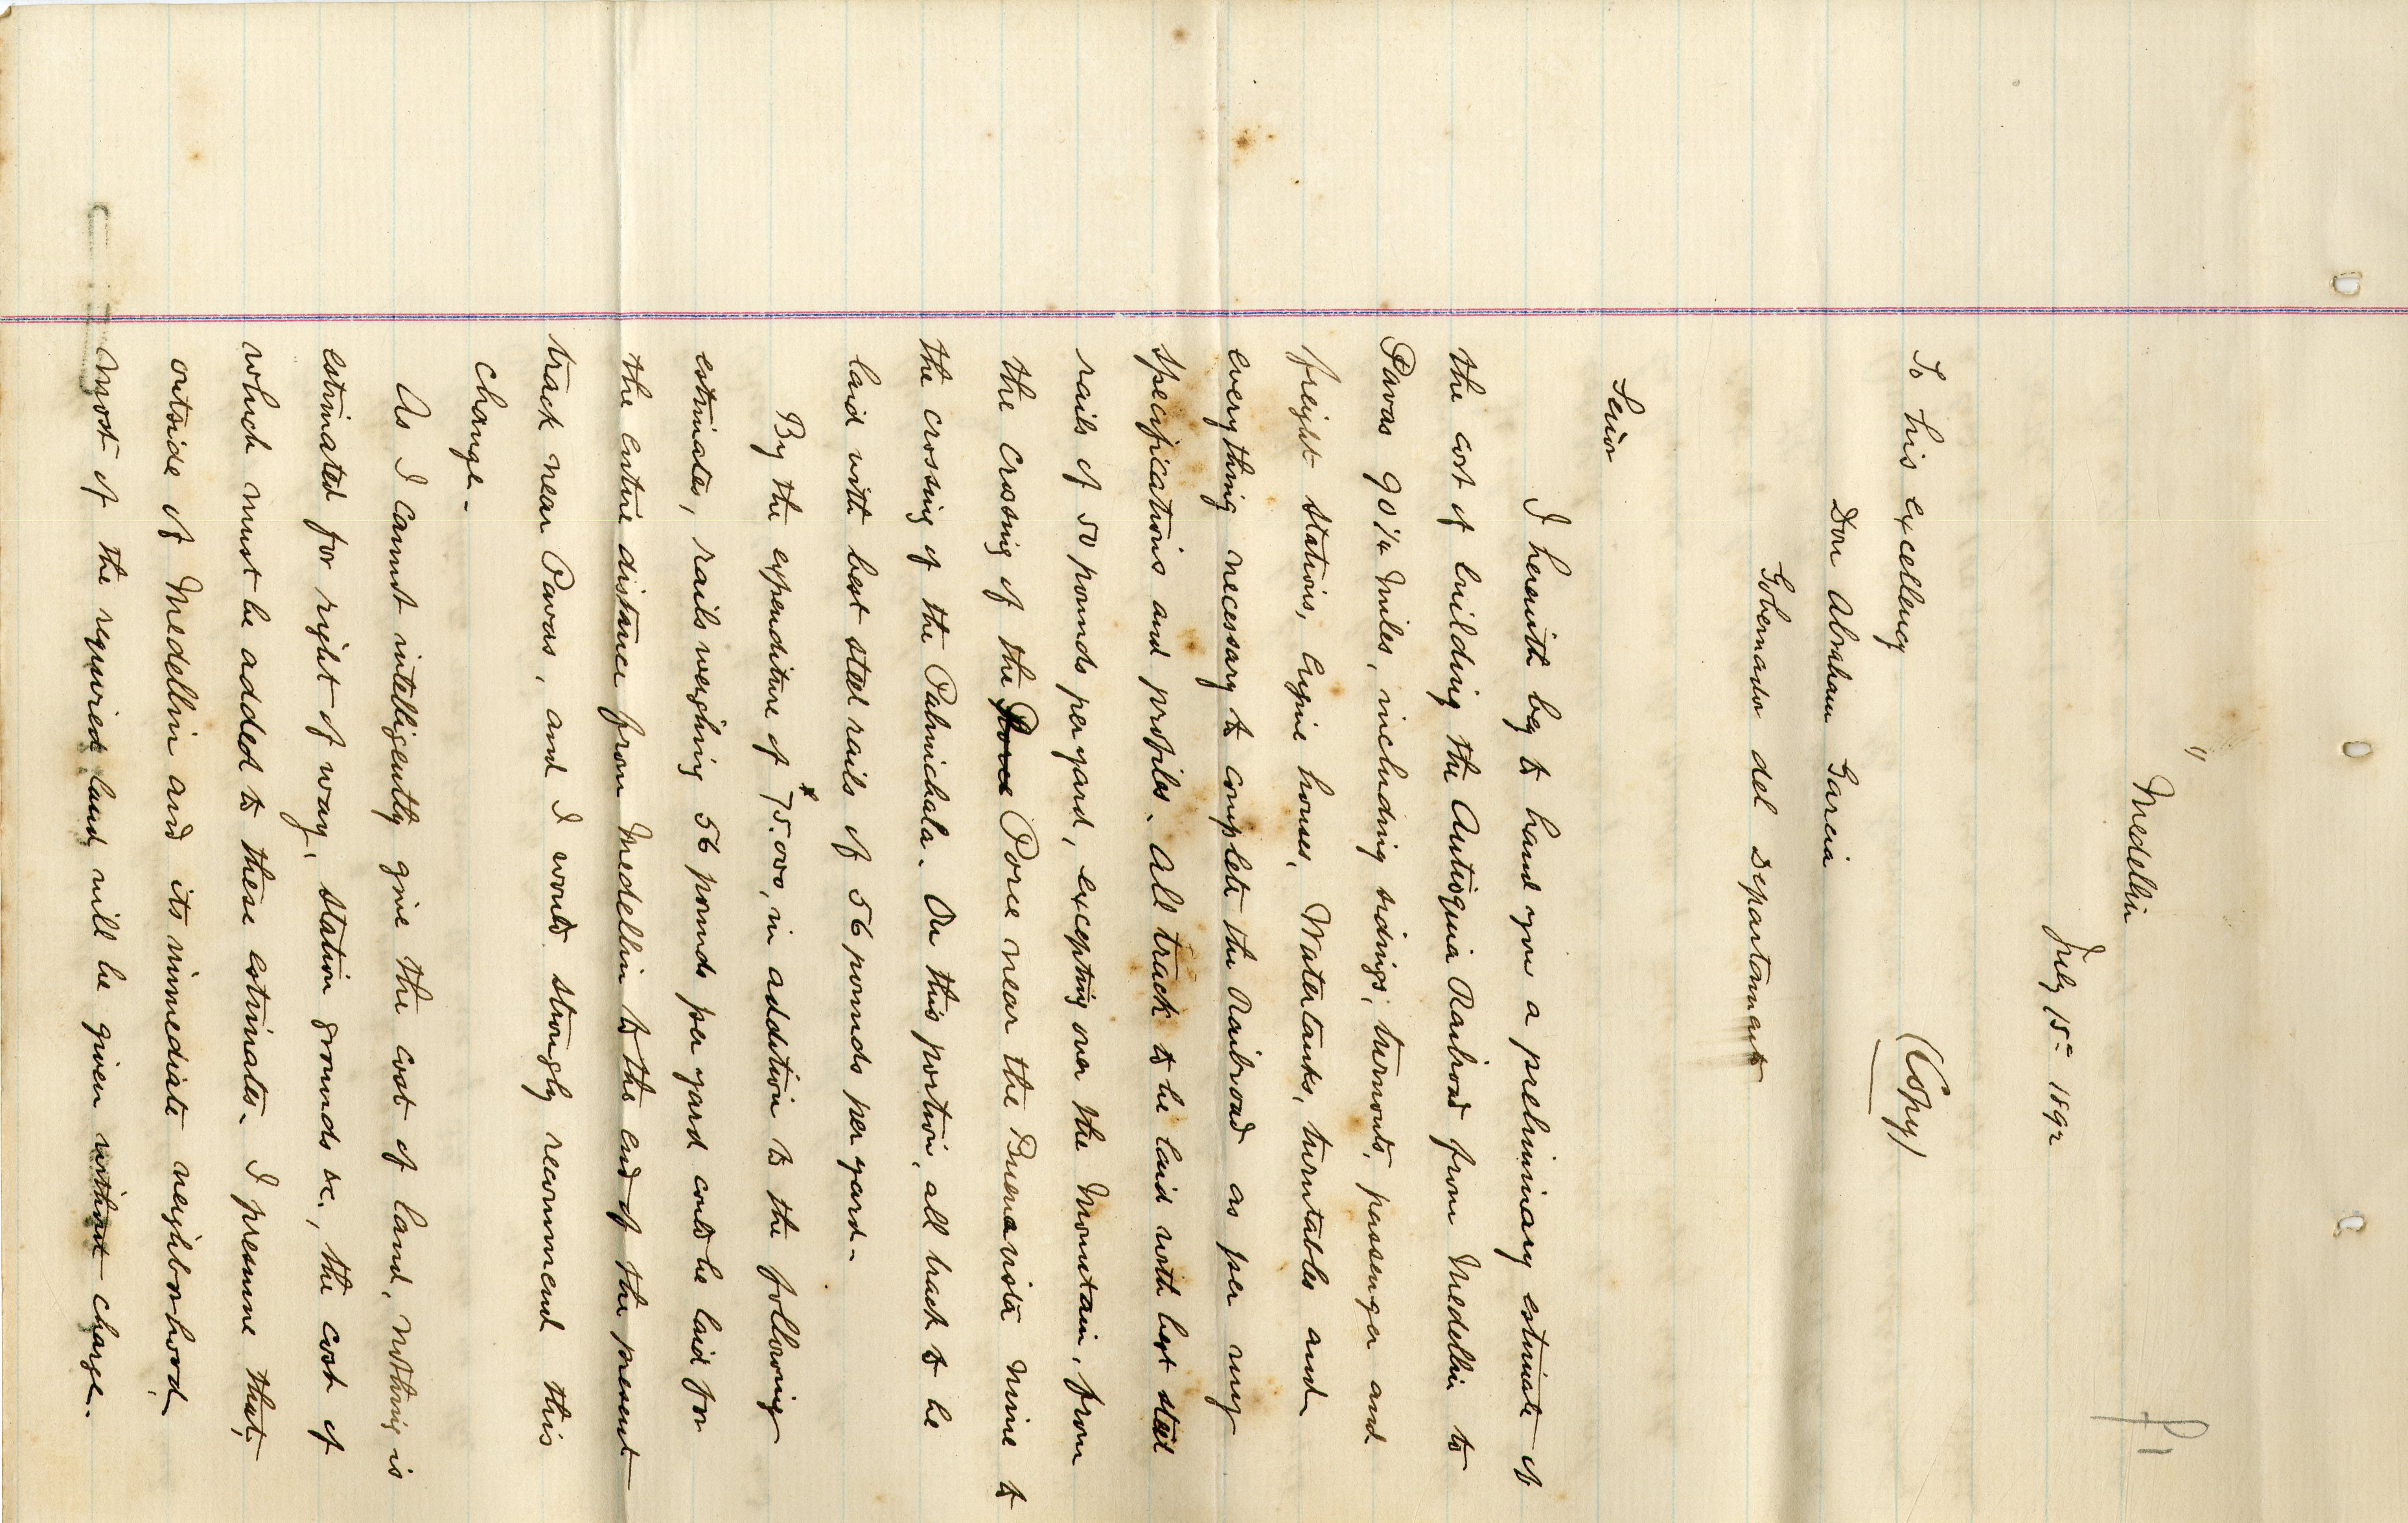 "
Medellin
July 15th 1892
P-1
To his Excellency
(Copy)
Don Abraham Garcia
Gobernador del Departamento
Señor
I herewith beg to hand you a preliminary estimate of
the cost of building the Antioquia Railroad from Medellin to
Pavas 90 1/4 miles, including sidings, turnouts, passenger and
freight stations, Engine houses, Watertanks, turntables and
everything necessary to complete the Railroad as per my
specifications and profiles. All track to be laid with best steel
rails of 50 pounds per yard, excepting over the Mountain, from
the crossing of the Porce near the Buenavista mine to
the crossing of the Palmichala. On this portion, all track to be
laid with best steel rails of 56 pounds per yard –
By the expenditure of $75.000, in addition to the following
estimates, rails weighing 56 pounds per yard could be laid for
the entire distance from Medellin to the end of the present
track near Pavas, and I would strongly recommend this
change –
As I cannot intelligently give the cost of land, nothing is
estimated for right of way, station grounds &c., the cost of
which must be added to these estimates. I presume that,
outside of Medellin and its immediate neighborhood,
most of the required land will be given without charge.